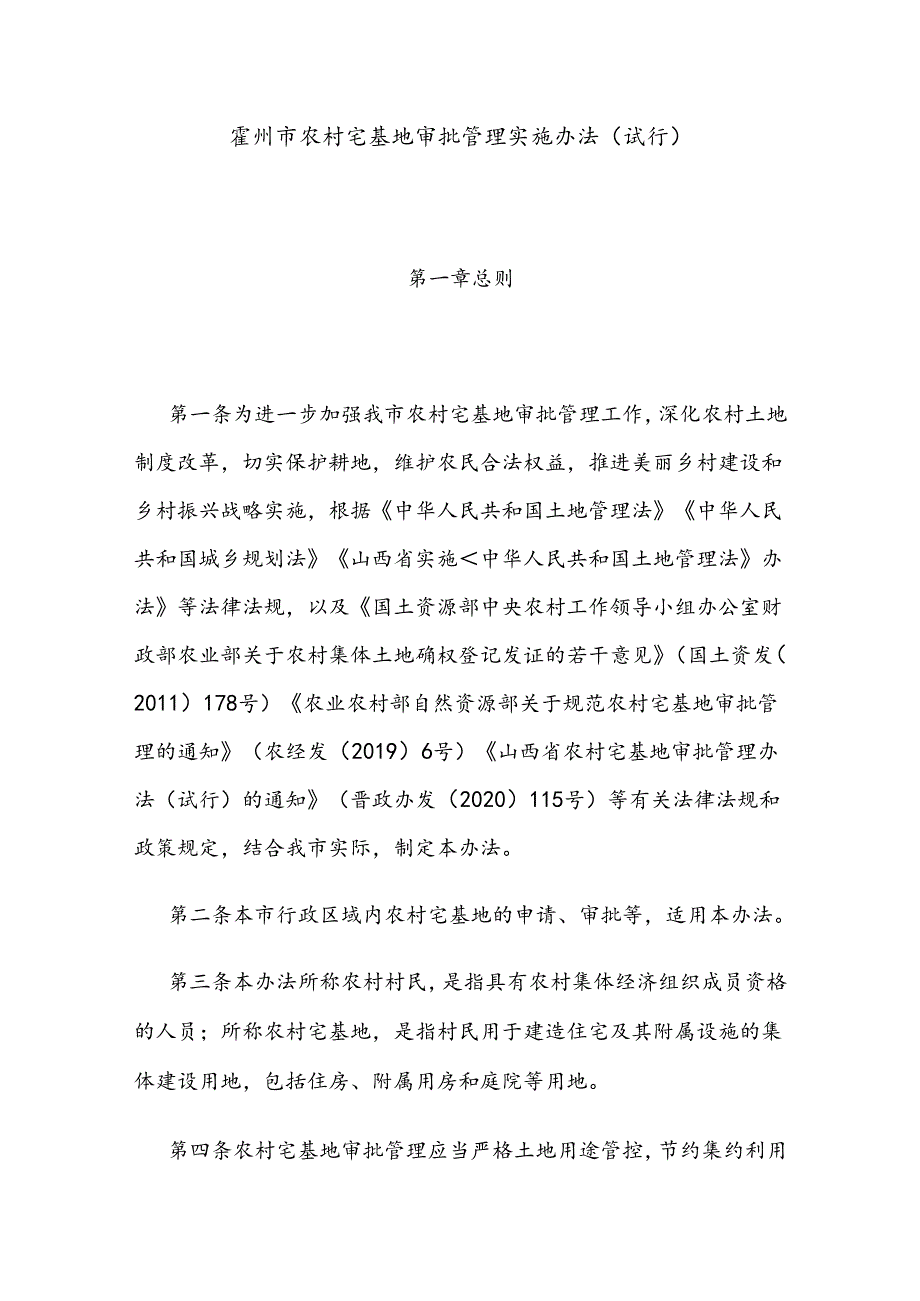 霍州市农村宅基地审批管理实施办法（试行）
第一章总则
第一条为进一步加强我市农村宅基地审批管理工作，深化农村土地
制度改革，切实保护耕地，维护农民合法权益，推进美丽乡村建设和
乡村振兴战略实施，根据《中华人民共和国土地管理法》《中华人民
共和国城乡规划法》《山西省实施＜中华人民共和国土地管理法》办
法》等法律法规，以及《国土资源部中央农村工作领导小组办公室财
政部农业部关于农村集体土地确权登记发证的若干意见》（国土资发（
2011）178号）《农业农村部自然资源部关于规范农村宅基地审批管
理的通知》（农经发（2019）6号）《山西省农村宅基地审批管理办
法（试行）的通知》（晋政办发（2020）115号）等有关法律法规和
政策规定，结合我市实际，制定本办法。
第二条本市行政区域内农村宅基地的申请、审批等，适用本办法。
第三条本办法所称农村村民，是指具有农村集体经济组织成员资格
的人员；所称农村宅基地，是指村民用于建造住宅及其附属设施的集
体建设用地，包括住房、附属用房和庭院等用地。
第四条农村宅基地审批管理应当严格土地用途管控，节约集约利用